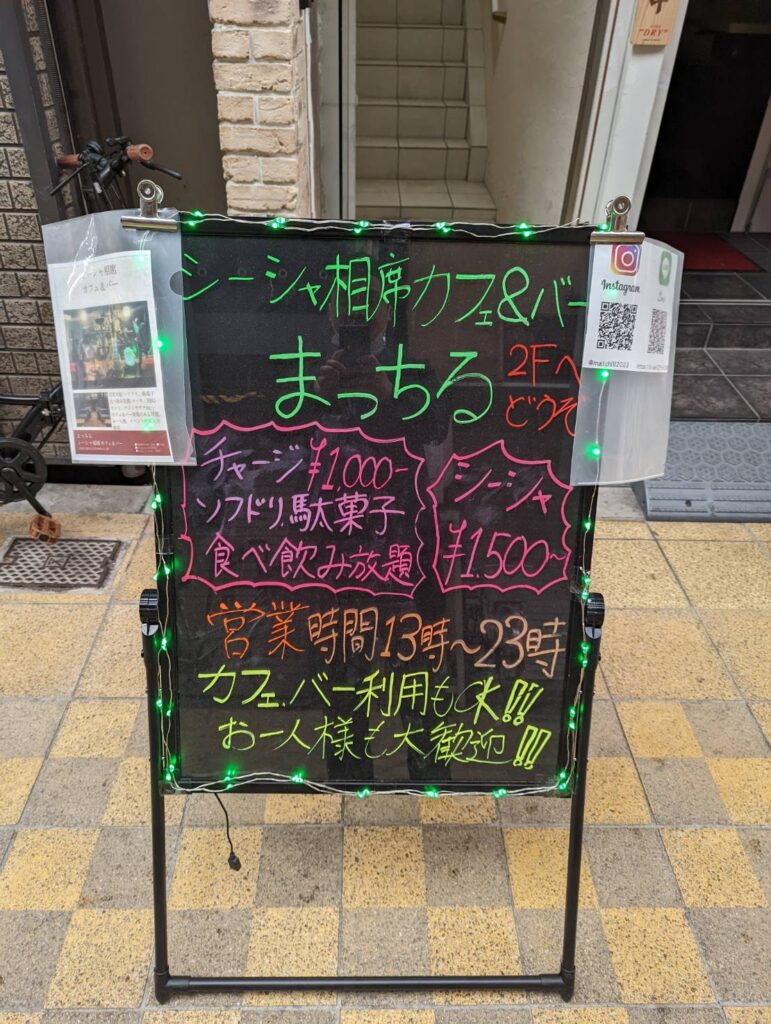 シーシャ相席カフェ&バー
まっちる
2Fへ
どうぞ
チャージ¥1,000-
ソフドリ、駄菓子
食べ飲み放題
シーシャ
¥1,500~
営業時間13時~23時
カフェ、バー利用もOK!!
お一人様も大歓迎!!
シーシャ相席
カフェ&バー
Instagram
@matchill2022
"DRY"